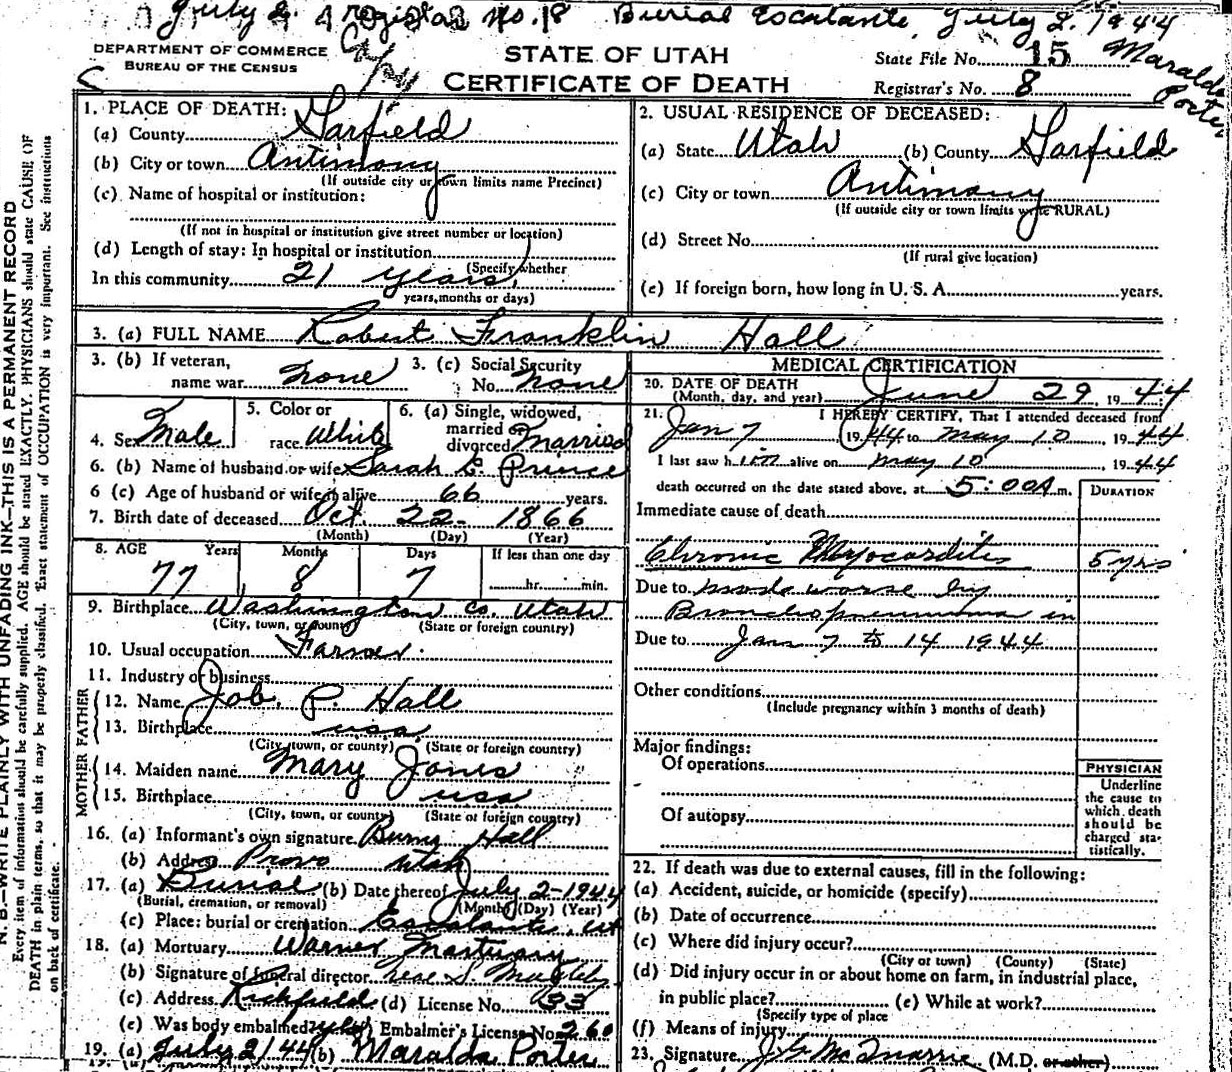 July 2, Registrar No. 18 Burial Escalante, July 2, 1944
DEPARTMENT OF COMMERCE
BUREAU OF THE CENSUS
STATE OF UTAH
CERTIFICATE OF DEATH
State File No. 15
Registrar's No. 8
Maralda Porter
N. B.—WRITE PLAINLY WITH UNFADING INK—THIS IS A PERMANENT RECORD
Every item of information should be carefully supplied. AGE should be stated EXACTLY. PHYSICIANS should state CAUSE OF
DEATH in plain terms, so that it may be properly classified. Exact statement of OCCUPATION is very important. See instructions
on back of certificate.
1. PLACE OF DEATH:
(a) County Garfield
(b) City or town Antimony
(If outside city or town limits name Precinct)
(c) Name of hospital or institution:
(If not in hospital or institution give street number or location)
(d) Length of stay: In hospital or institution
(Specify whether
In this community 21 years
years, months or days)
2. USUAL RESIDENCE OF DECEASED:
(a) State Utah (b) County Garfield
(c) City or town Antimony
(If outside city or town limits write RURAL)
(d) Street No.
(If rural give location)
(e) If foreign born, how long in U. S. A. years.
3. (a) FULL NAME Robert Franklin Hall
3. (b) If veteran,
name war none
3. (c) Social Security
No. none
4. Sex Male
5. Color or
race White
6. (a) Single, widowed,
married or
divorced Married
6. (b) Name of husband or wife Sarah E. Prince
6 (c) Age of husband or wife if alive 66 years.
7. Birth date of deceased Oct. 22 - 1866
(Month) (Day) (Year)
8. AGE Years Months Days If less than one day
77 8 7 hr. min.
9. Birthplace Washington Co. Utah
(City, town, or county) (State or foreign country)
10. Usual occupation Farmer.
11. Industry or business
FATHER
12. Name Job. P. Hall
13. Birthplace usa
(City, town, or county) (State or foreign country)
MOTHER
14. Maiden name Mary Jones
15. Birthplace usa
(City, town, or county) (State or foreign country)
16. (a) Informant's own signature Burns Hall
(b) Address Provo Utah
17. (a) Burial (b) Date thereof July 2-1944
(Burial, cremation, or removal) (Month) (Day) (Year)
(c) Place: burial or cremation Escalante, Ut
18. (a) Mortuary Warner Mortuary
(b) Signature of funeral director
(c) Address Richfield (d) License No.
(e) Was body embalmed? yes Embalmer's License No. 260
19. (a) July 2/44 (b) Maralda Porter
MEDICAL CERTIFICATION
20. DATE OF DEATH
(Month, day, and year) June 29, 1944
21. I HEREBY CERTIFY, That I attended deceased from
Jan 7 1944 to May 10, 1944
I last saw him alive on May 10, 1944
death occurred on the date stated above, at 5:00A m.
DURATION
Immediate cause of death
Chronic Myocarditis 5 yrs
Due to made worse by
Bronchopneumonia in
Due to Jan 7 to 14 1944
Other conditions
(Include pregnancy within 3 months of death)
Major findings:
Of operations
Of autopsy
PHYSICIAN
Underline
the cause to
which death
should be
charged sta-
tistically.
22. If death was due to external causes, fill in the following:
(a) Accident, suicide, or homicide (specify)
(b) Date of occurrence
(c) Where did injury occur?
(City or town) (County) (State)
(d) Did injury occur in or about home on farm, in industrial place,
in public place? (e) While at work?
(Specify type of place
(f) Means of injury
23. Signature (M.D. or other)